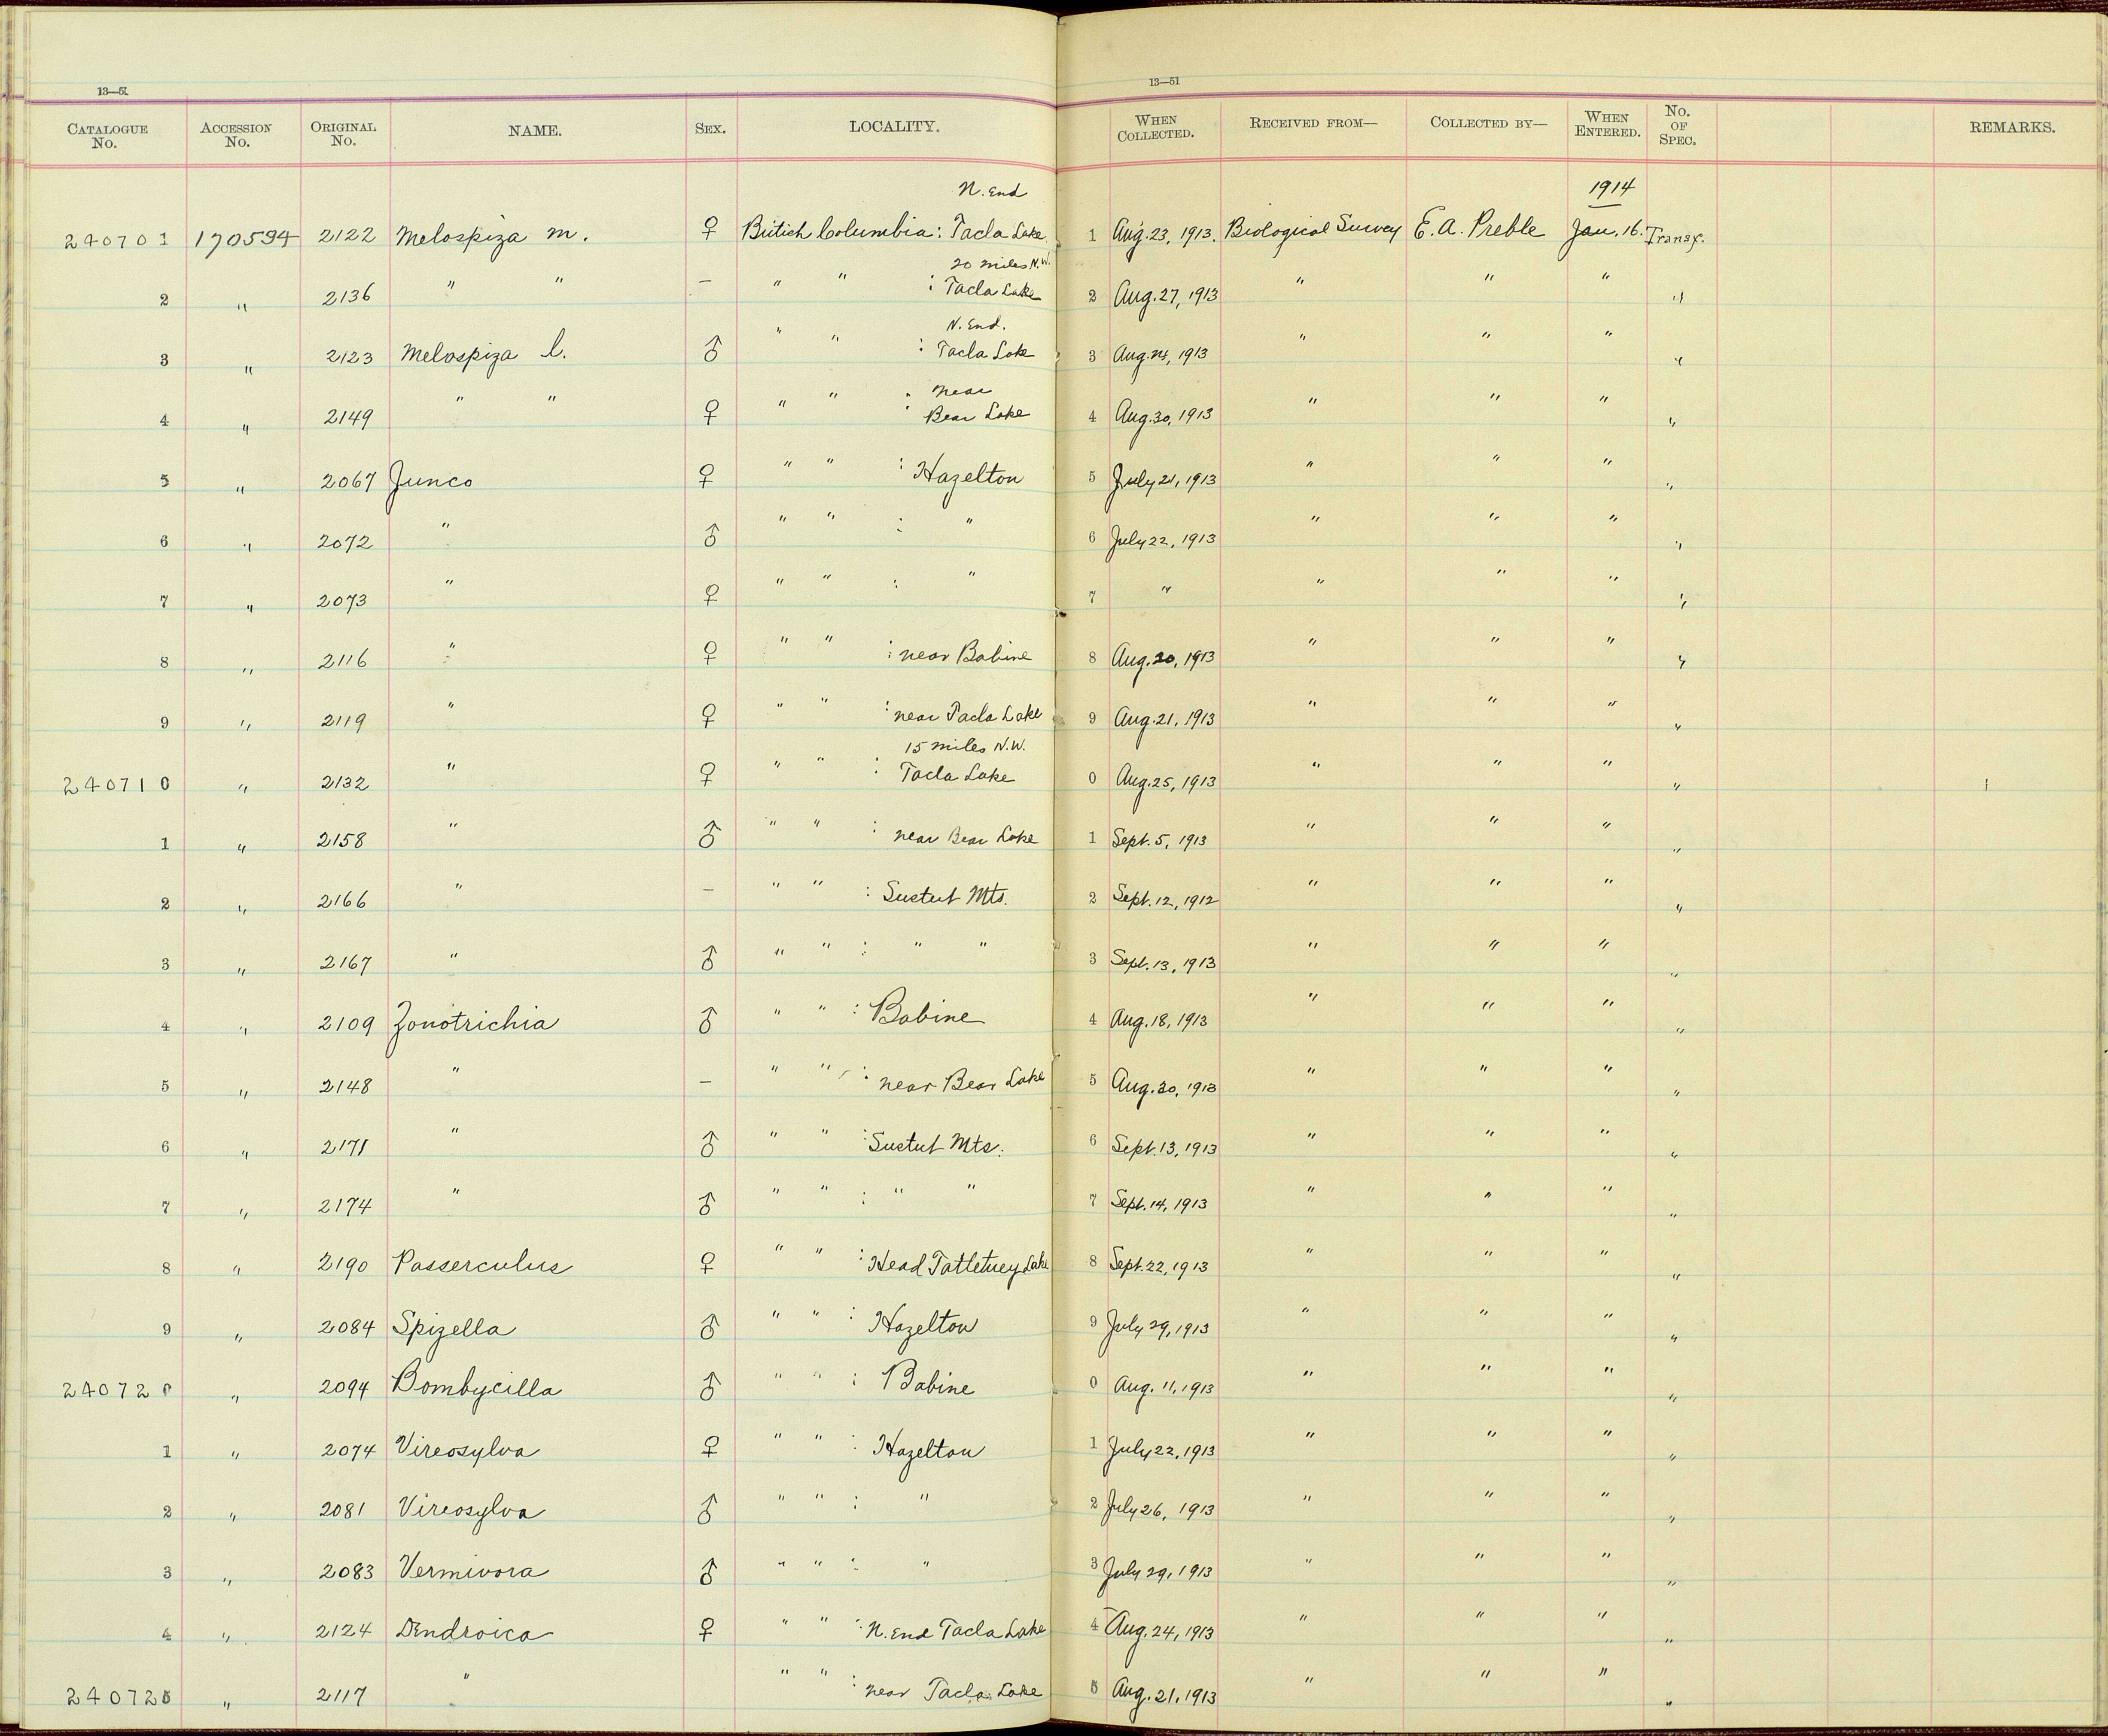 13—51
13—51
CATALOGUE No. ACCESSION No. ORIGINAL No. NAME. SEX. LOCALITY. WHEN COLLECTED. RECEIVED FROM— COLLECTED BY— WHEN ENTERED. No. OF SPEC. REMARKS.
N. End 1914
240701 170594 2122 Melospiza m. ♀ British Columbia: Tacla Lake 1 Aug. 23, 1913. Biological Survey E. A. Preble Jan. 16. Transf.
20 miles N.W.
2 " 2136 " " — " " : Tacla Lake 2 Aug. 27, 1913 " " " "
N. End.
3 " 2123 Melospiza l. ♂ " " : Tacla Lake 3 Aug. 24, 1913 " " " "
near
4 " 2149 " " ♀ " " : Bear Lake 4 Aug. 30, 1913 " " " "
5 " 2067 Junco ♀ " " : Hazelton 5 July 21, 1913 " " " "
6 " 2072 " ♂ " " : " 6 July 22, 1913 " " " "
7 " 2073 " ♀ " " : " 7 " " " " "
8 " 2116 " ♀ " " : near Babine 8 Aug. 20, 1913 " " " "
9 " 2119 " ♀ " " : near Tacla Lake 9 Aug. 21, 1913 " " " "
15 miles N.W.
240710 " 2132 " ♀ " " : Tacla Lake 0 Aug. 25, 1913 " " " "
1 " 2158 " ♂ " " : near Bear Lake 1 Sept. 5, 1913 " " " "
2 " 2166 " — " " : Sustut Mts. 2 Sept. 12, 1912 " " " "
3 " 2167 " ♂ " " : " " 3 Sept. 13, 1913 " " " "
4 " 2109 Zonotrichia ♂ " " : Babine 4 Aug. 18, 1913 " " " "
5 " 2148 " — " " : near Bear Lake 5 Aug. 30, 1913 " " " "
6 " 2171 " ♂ " " : Sustut Mts. 6 Sept. 13, 1913 " " " "
7 " 2174 " ♂ " " : " " 7 Sept. 14, 1913 " " " "
8 " 2190 Passerculus ♀ " " : Head Tatletuey Lake 8 Sept. 22, 1913 " " " "
9 " 2084 Spizella ♂ " " : Hazelton 9 July 29, 1913 " " " "
240720 " 2094 Bombycilla ♂ " " : Babine 0 Aug. 11, 1913 " " " "
1 " 2074 Vireosylva ♀ " " : Hazelton 1 July 22, 1913 " " " "
2 " 2081 Vireosylva ♂ " " : " 2 July 26, 1913 " " " "
3 " 2083 Vermivora ♂ " " : " 3 July 29, 1913 " " " "
4 " 2124 Dendroica ♀ " " : N. End Tacla Lake 4 Aug. 24, 1913 " " " "
240725 " 2117 " " " : near Tacla Lake 5 Aug. 21, 1913 " " " "